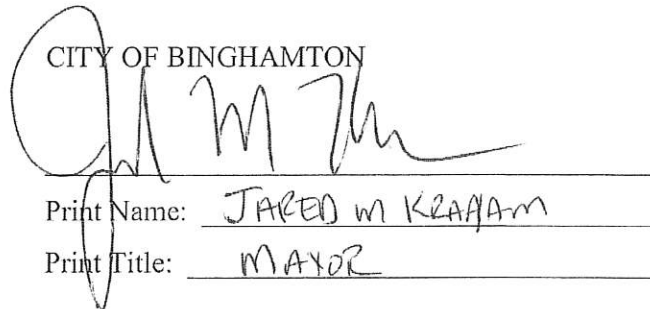 CITY OF BINGHAMTON
Print Name: JARED M KRAHAM
Print Title: MAYOR